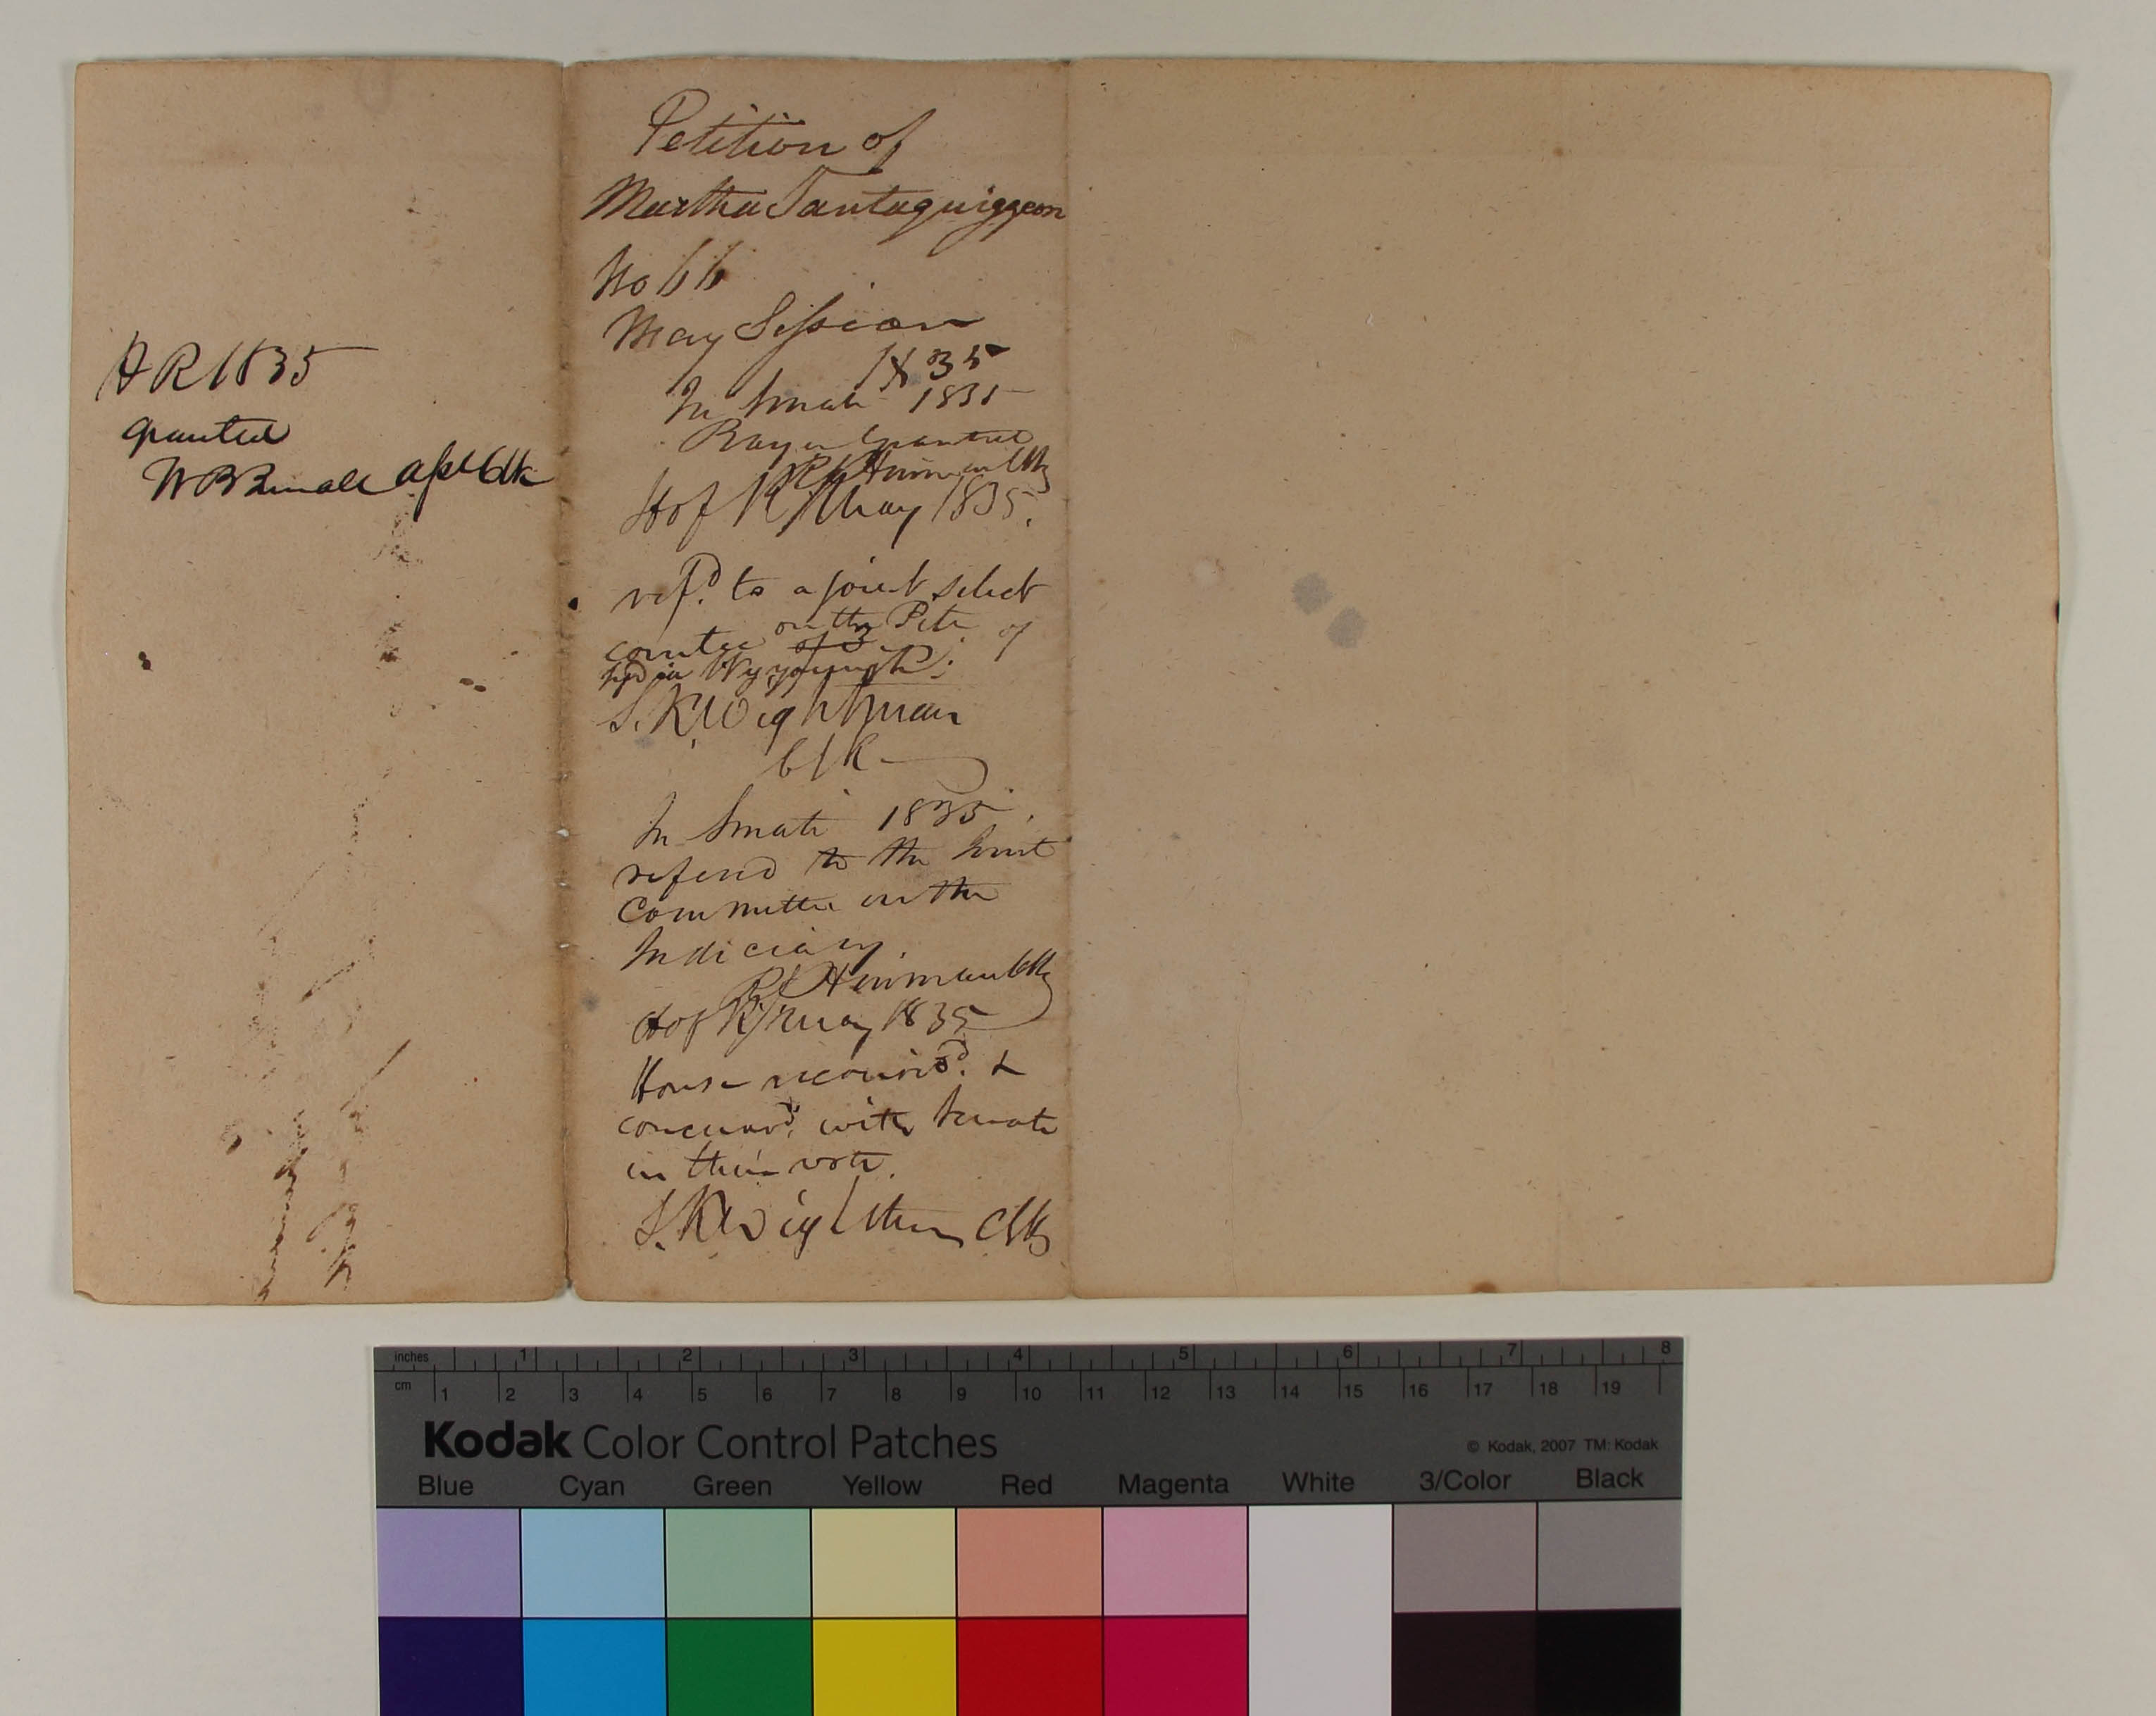 H R 1835
granted
Asst Clk
Petition of
Martha Tantaquiggeon
No 66
May Session
1835
In Senate 1835
Prayer Granted
R R Hinman Clk
H of R, May 1835.
refd. to a joint select
comtee on the Petn. of
S. K. Wightman
Clk
In Senate 1835.
referd to the Joint
Committee on the
Judiciary.
R R Hinman Clk
H of R, May 1835
House reconsd. &
concurrd. with Senate
in their vote.
S. K. Wightman Clk
inches 1 2 3 4 5 6 7 8
cm 1 2 3 4 5 6 7 8 9 10 11 12 13 14 15 16 17 18 19
Kodak Color Control Patches
© Kodak, 2007 TM: Kodak
Blue Cyan Green Yellow Red Magenta White 3/Color Black